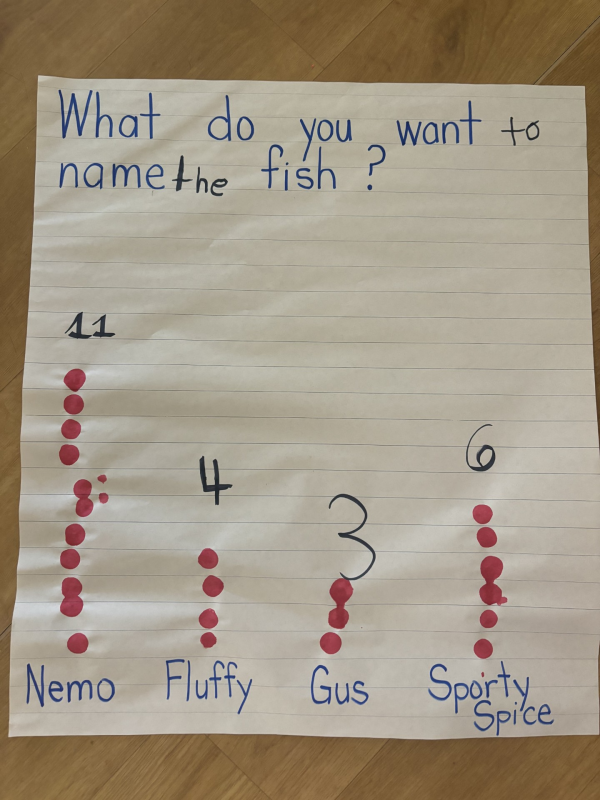 What do you want to
name the fish ?
11
4
3
6
Nemo Fluffy Gus Sporty
Spice